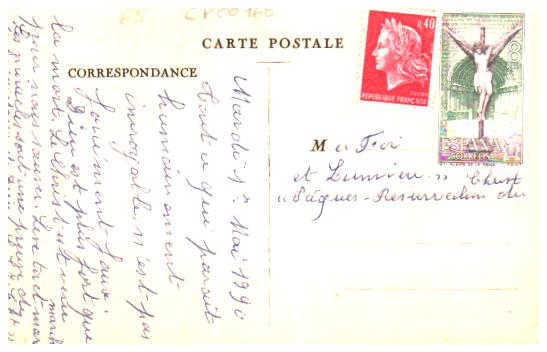 65 CP00160
CARTE POSTALE
CORRESPONDANCE
0,40
POSTES
REPUBLIQUE FRANÇAISE
8
ESPAÑA
CORREOS
Mardi 1er Mai 1990
Tout ce qui paraît
humainement
incroyable n'est pas
forcément faux.
Dieu est plus fort que
la mort. Le Christ est venu
pour nous sauver. Lire
Les miracles sont une preuve
M
et Lumière » Christ
« Pâques - Résurrection du